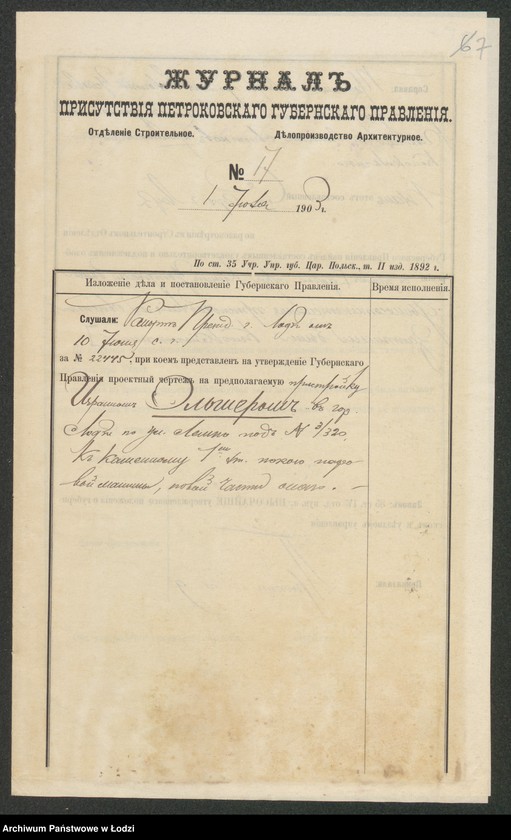 67
ЖУРНАЛЪ
ПРИСУТСТВІЯ ПЕТРОКОВСКАГО ГУБЕРНСКАГО ПРАВЛЕНІЯ.
Отдѣленіе Строительное. Дѣлопроизводство Архитектурное.
№ 17
1 1903 г.
По ст. 35 Учр. Упр. губ. Цар. Польск., т. II изд. 1892 г.
Изложеніе дѣла и постановленіе Губернскаго Правленія. Время исполненія.
Слушали: Рапортъ През. г. Лодзи отъ
10 Іюня с. г.
за № 22445, при коемъ представленъ на утвержденіе Губернскаго
Правленія проектный чертежъ на предполагаемую пристройку
Эльшеромъ въ гор.
Лодзи по ул. подъ № 3/320,
къ каменному 1 эт.
вой машины, новой части онаго. —
Archiwum Państwowe w Łodzi